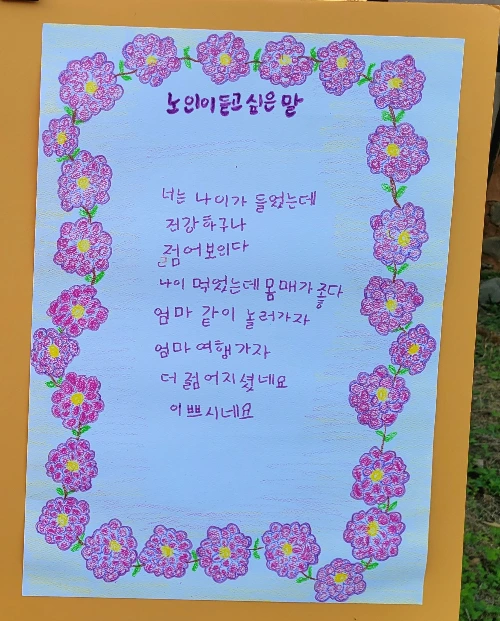 노인이 듣고 싶은 말
너는 나이가 들었는데
건강하구나
젊어보인다
나이 먹었는데 몸매가 좋다
엄마 같이 놀러가자
엄마 여행가자
더 젊어지셨네요
이쁘시네요